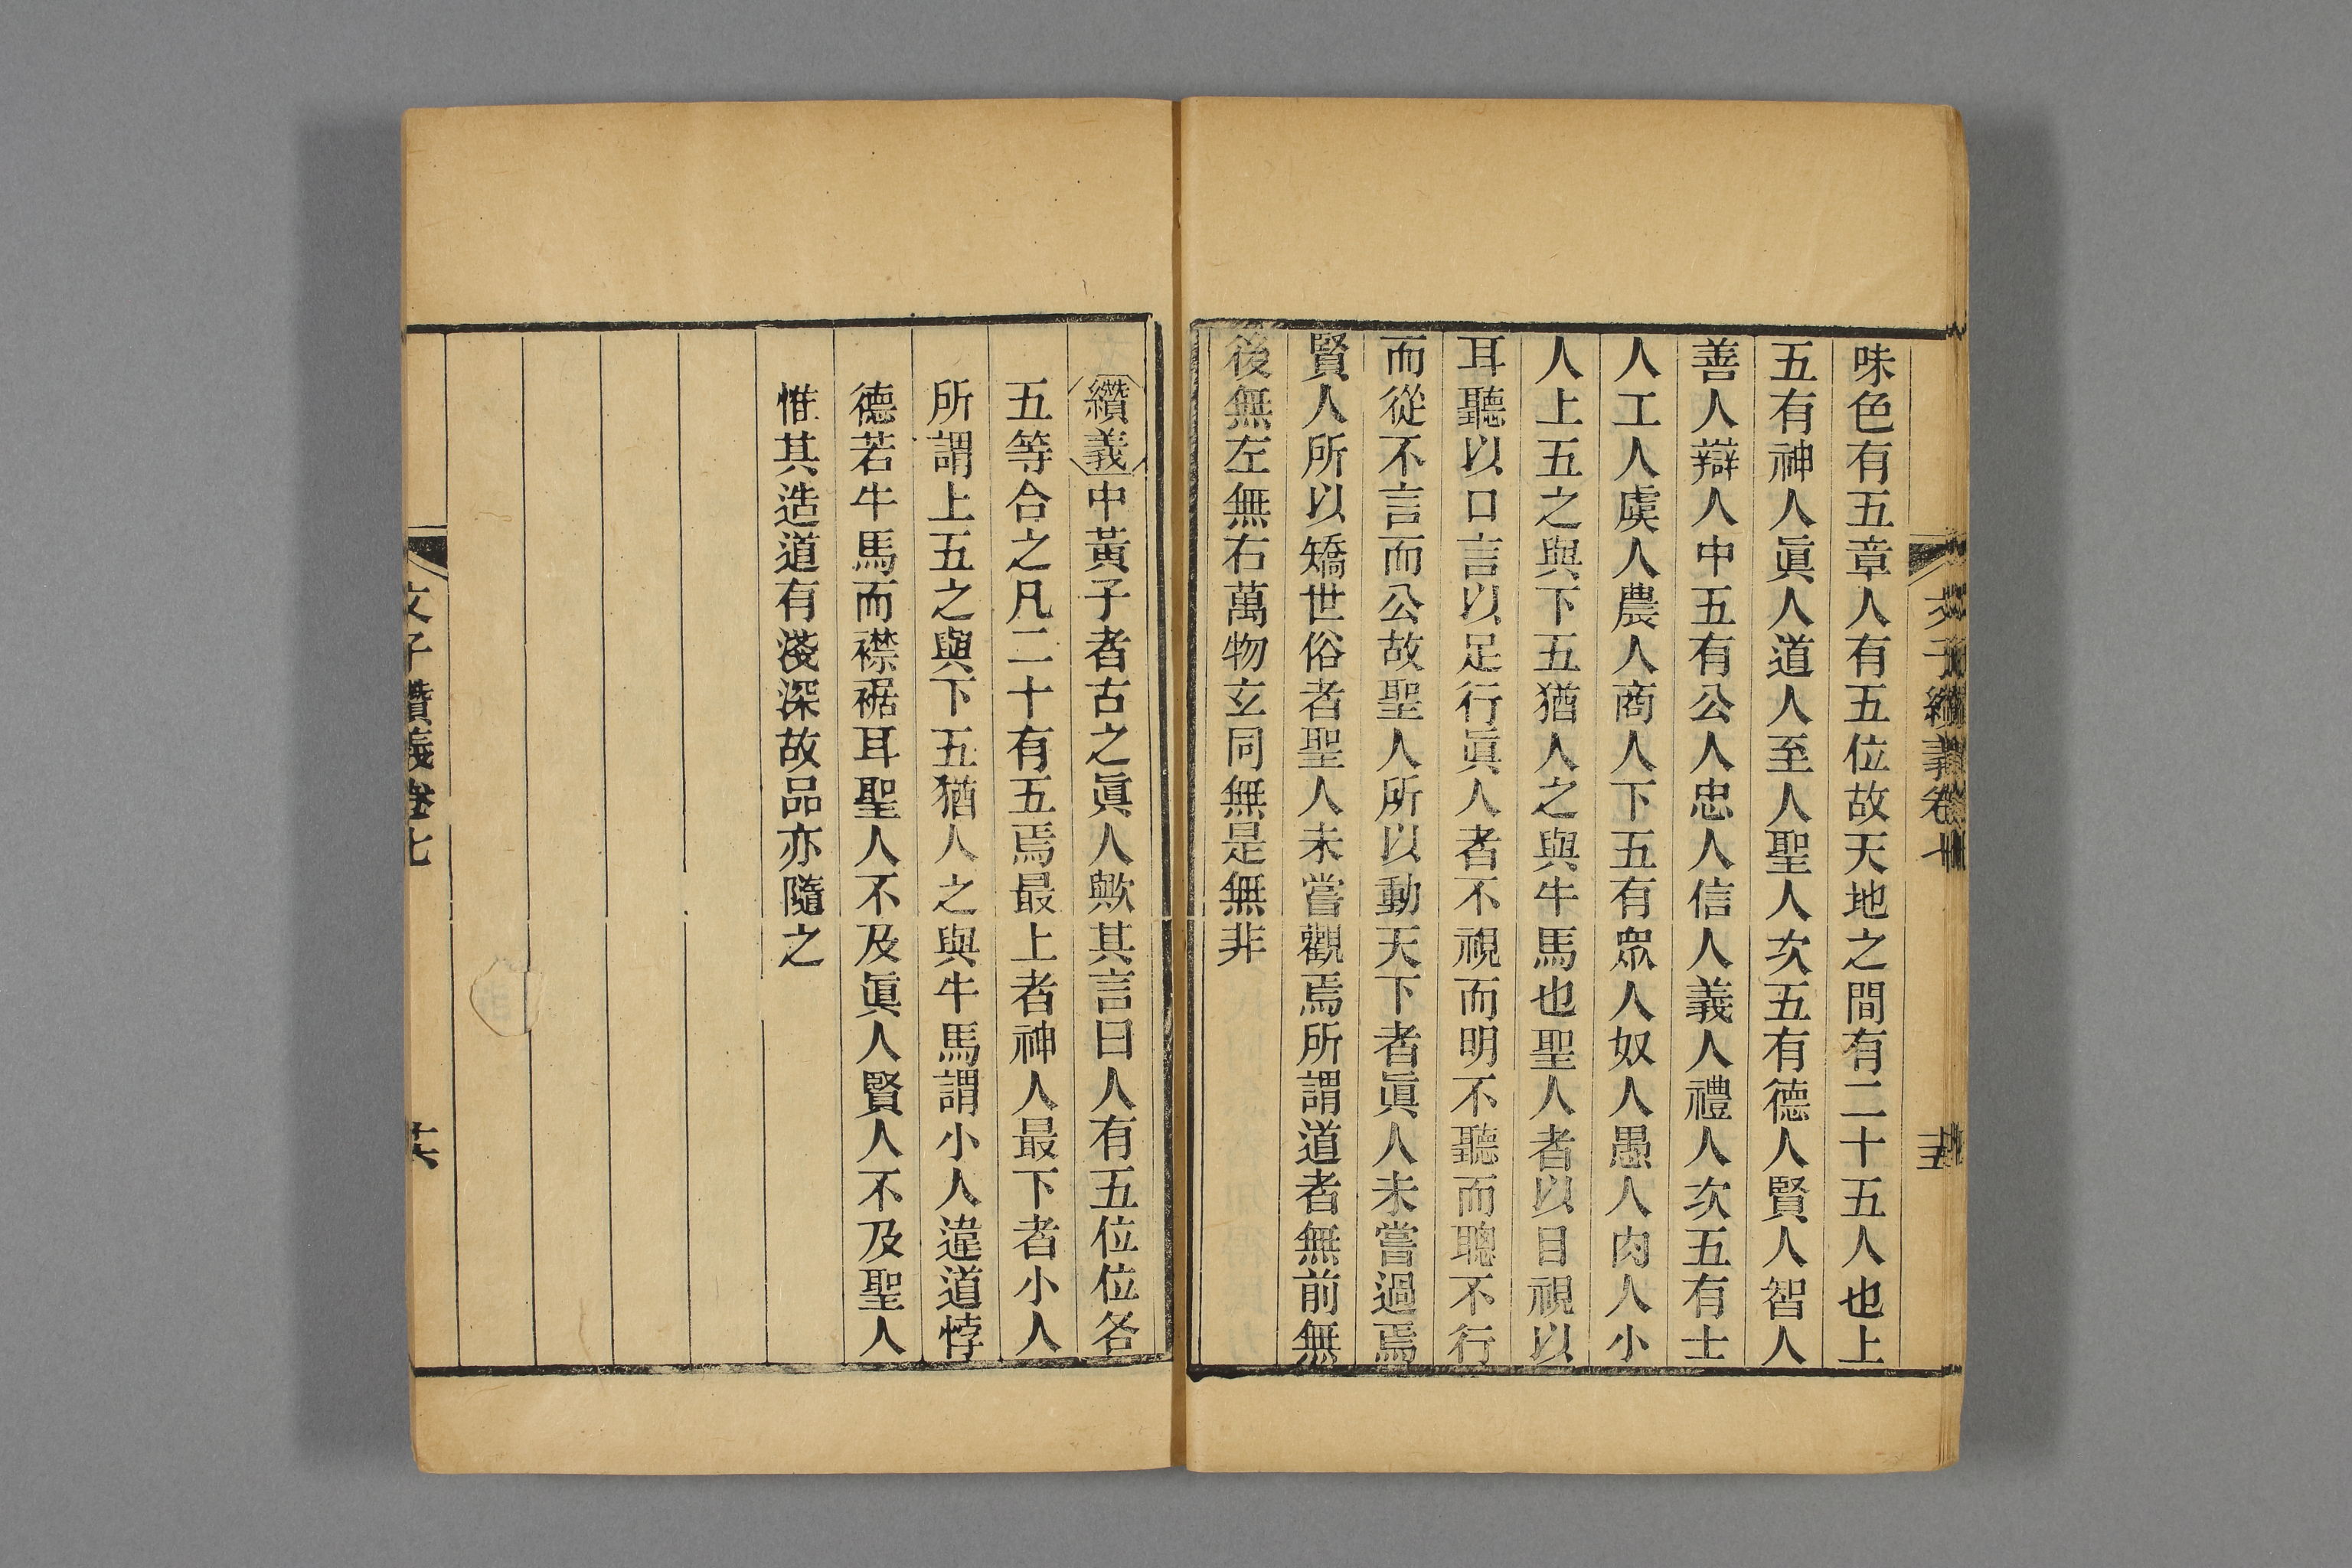 味色有五章人有五位故天地之間有二十五人也上
五有神人眞人道人至人聖人次五有德人賢人智人
善人辯人中五有公人忠人信人義人禮人次五有士
人工人虞人農人商人下五有眾人奴人愚人肉人小
人上五之與下五猶人之與牛馬也聖人者以目視以
耳聽以口言以足行眞人者不視而明不聽而聰不行
而從不言而公故聖人所以動天下者眞人未嘗過焉
賢人所以矯世俗者聖人未嘗觀焉所謂道者無前無
後無左無右萬物玄同無是無非
纘義中黃子者古之眞人歟其言曰人有五位位各
五等合之凡二十有五焉最上者神人最下者小人
所謂上五之與下五猶人之與牛馬謂小人違道悖
德若牛馬而襟裾耳聖人不及眞人賢人不及聖人
惟其造道有淺深故品亦隨之
文子纘義卷七